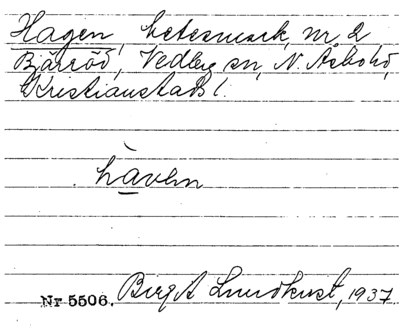 Hagen, betesmark, nr 2,
Bärröd, Vedby sn, N. Åsbo hd,
Kristianstads l.
hàven
Nr 5506. Birgit Lundkvist, 1937